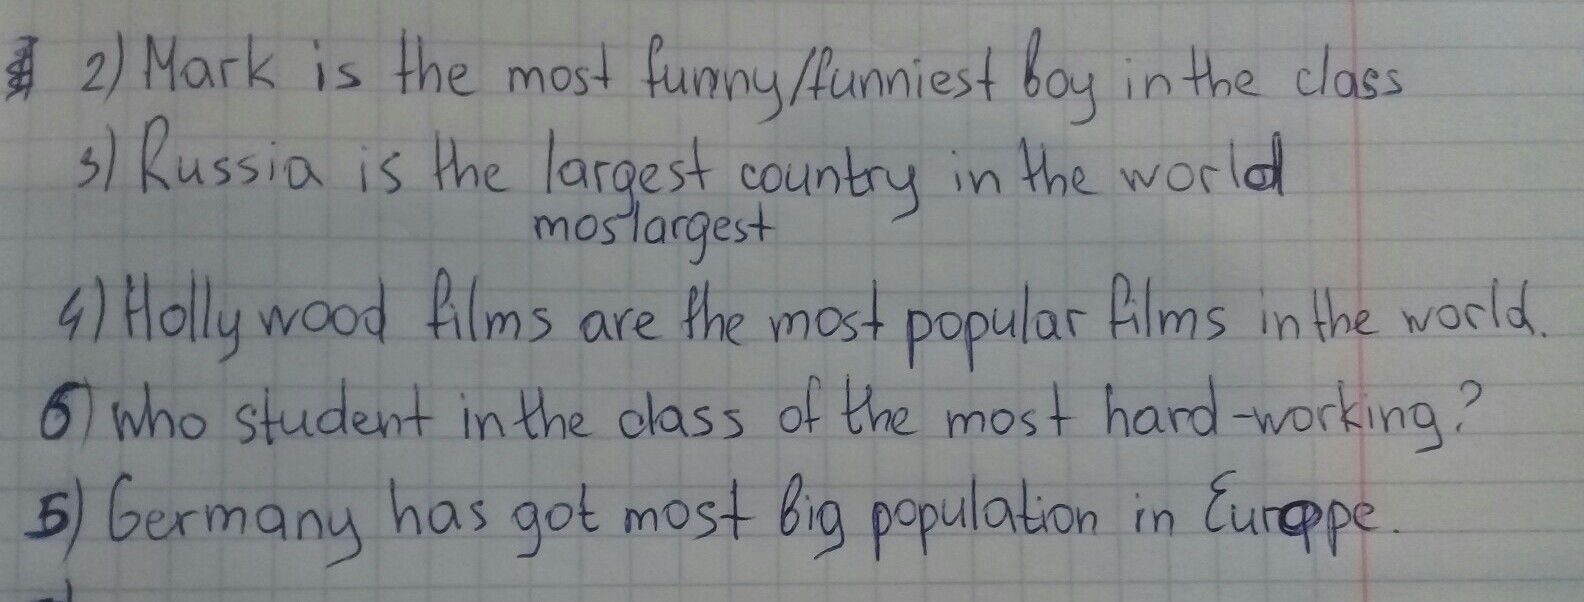 2) Mark is the most funny/funniest boy in the class
3) Russia is the largest country in the world
moslargest
4) Hollywood films are the most popular films in the world.
6) Who student in the class of the most hard-working?
5) Germany has got most big population in Europe.